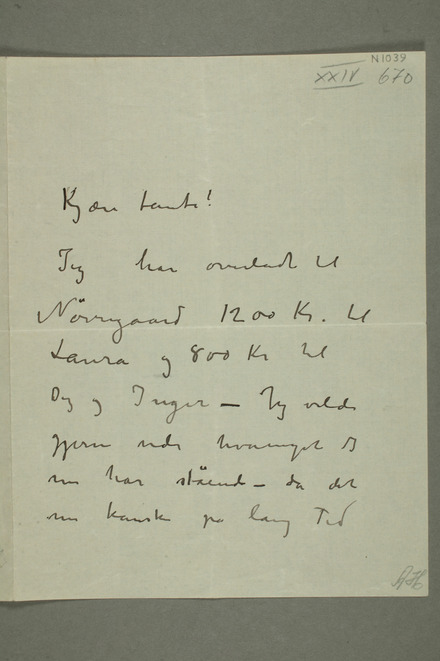 N1039
XXIV 670
Kjære tante!
Jeg har overladt til
Nörregaard 1200 Kr. til
Laura og 800 Kr til
Dig og Inger – Jeg vilde
gjerne vide hvormeget I
nu har stående – da det
nu kanske på lang Tid